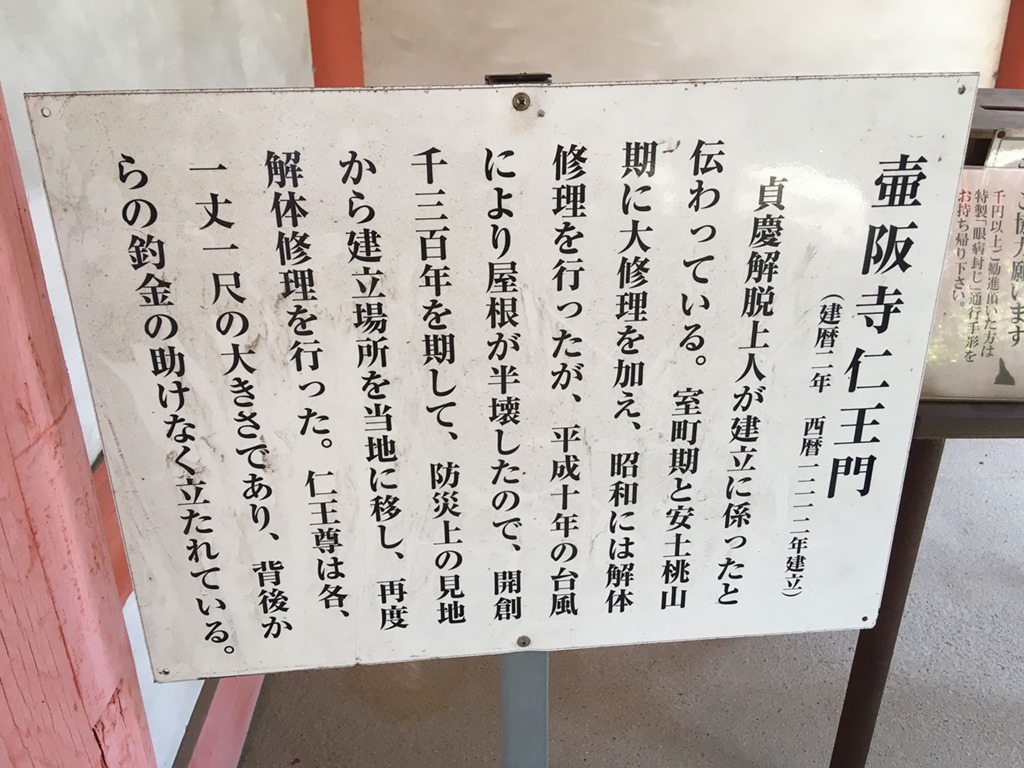 壷阪寺仁王門
（建暦二年　西暦一二一二年建立）
貞慶解脱上人が建立に係ったと
伝わっている。室町期と安土桃山
期に大修理を加え、昭和には解体
修理を行ったが、平成十年の台風
により屋根が半壊したので、開創
千三百年を期して、防災上の見地
から建立場所を当地に移し、再度
解体修理を行った。仁王尊は各、
一丈一尺の大きさであり、背後か
らの釣金の助けなく立たれている。
ご協力願います
千円以上ご勧進頂いた方は
特製「眼病封じ」通行手形を
お持ち帰り下さい。